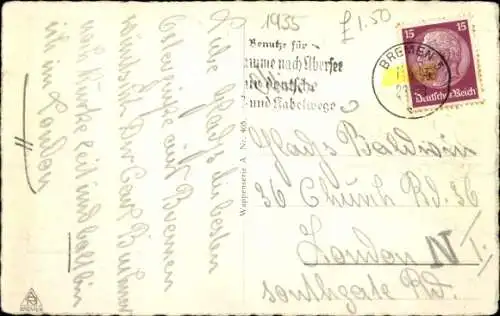 1935
£1.50
Benutze für
nach Übersee
deutsche
und Kabelwege
BREMEN
15 15
Deutsches Reich
Liebe Gladys die besten
Ostergrüße aus Bremen
wünscht Dir
noch kurze Zeit und bald bin
ich in London
Wappenserie A Nr. 405
Gladys Baldwin
36 Church Rd. 36
London N 1.
Southgate Rd.
BREMEN